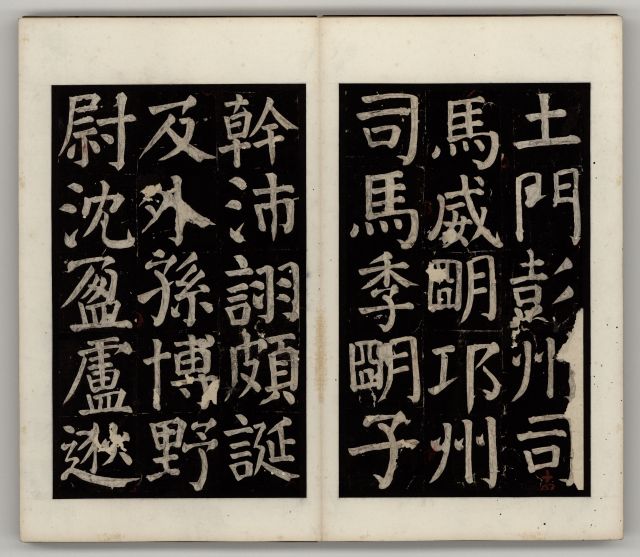 土門彭州司
馬威朙邛州
司馬季朙子
幹沛詡頗誕
及外孫博野
尉沈盈盧逖